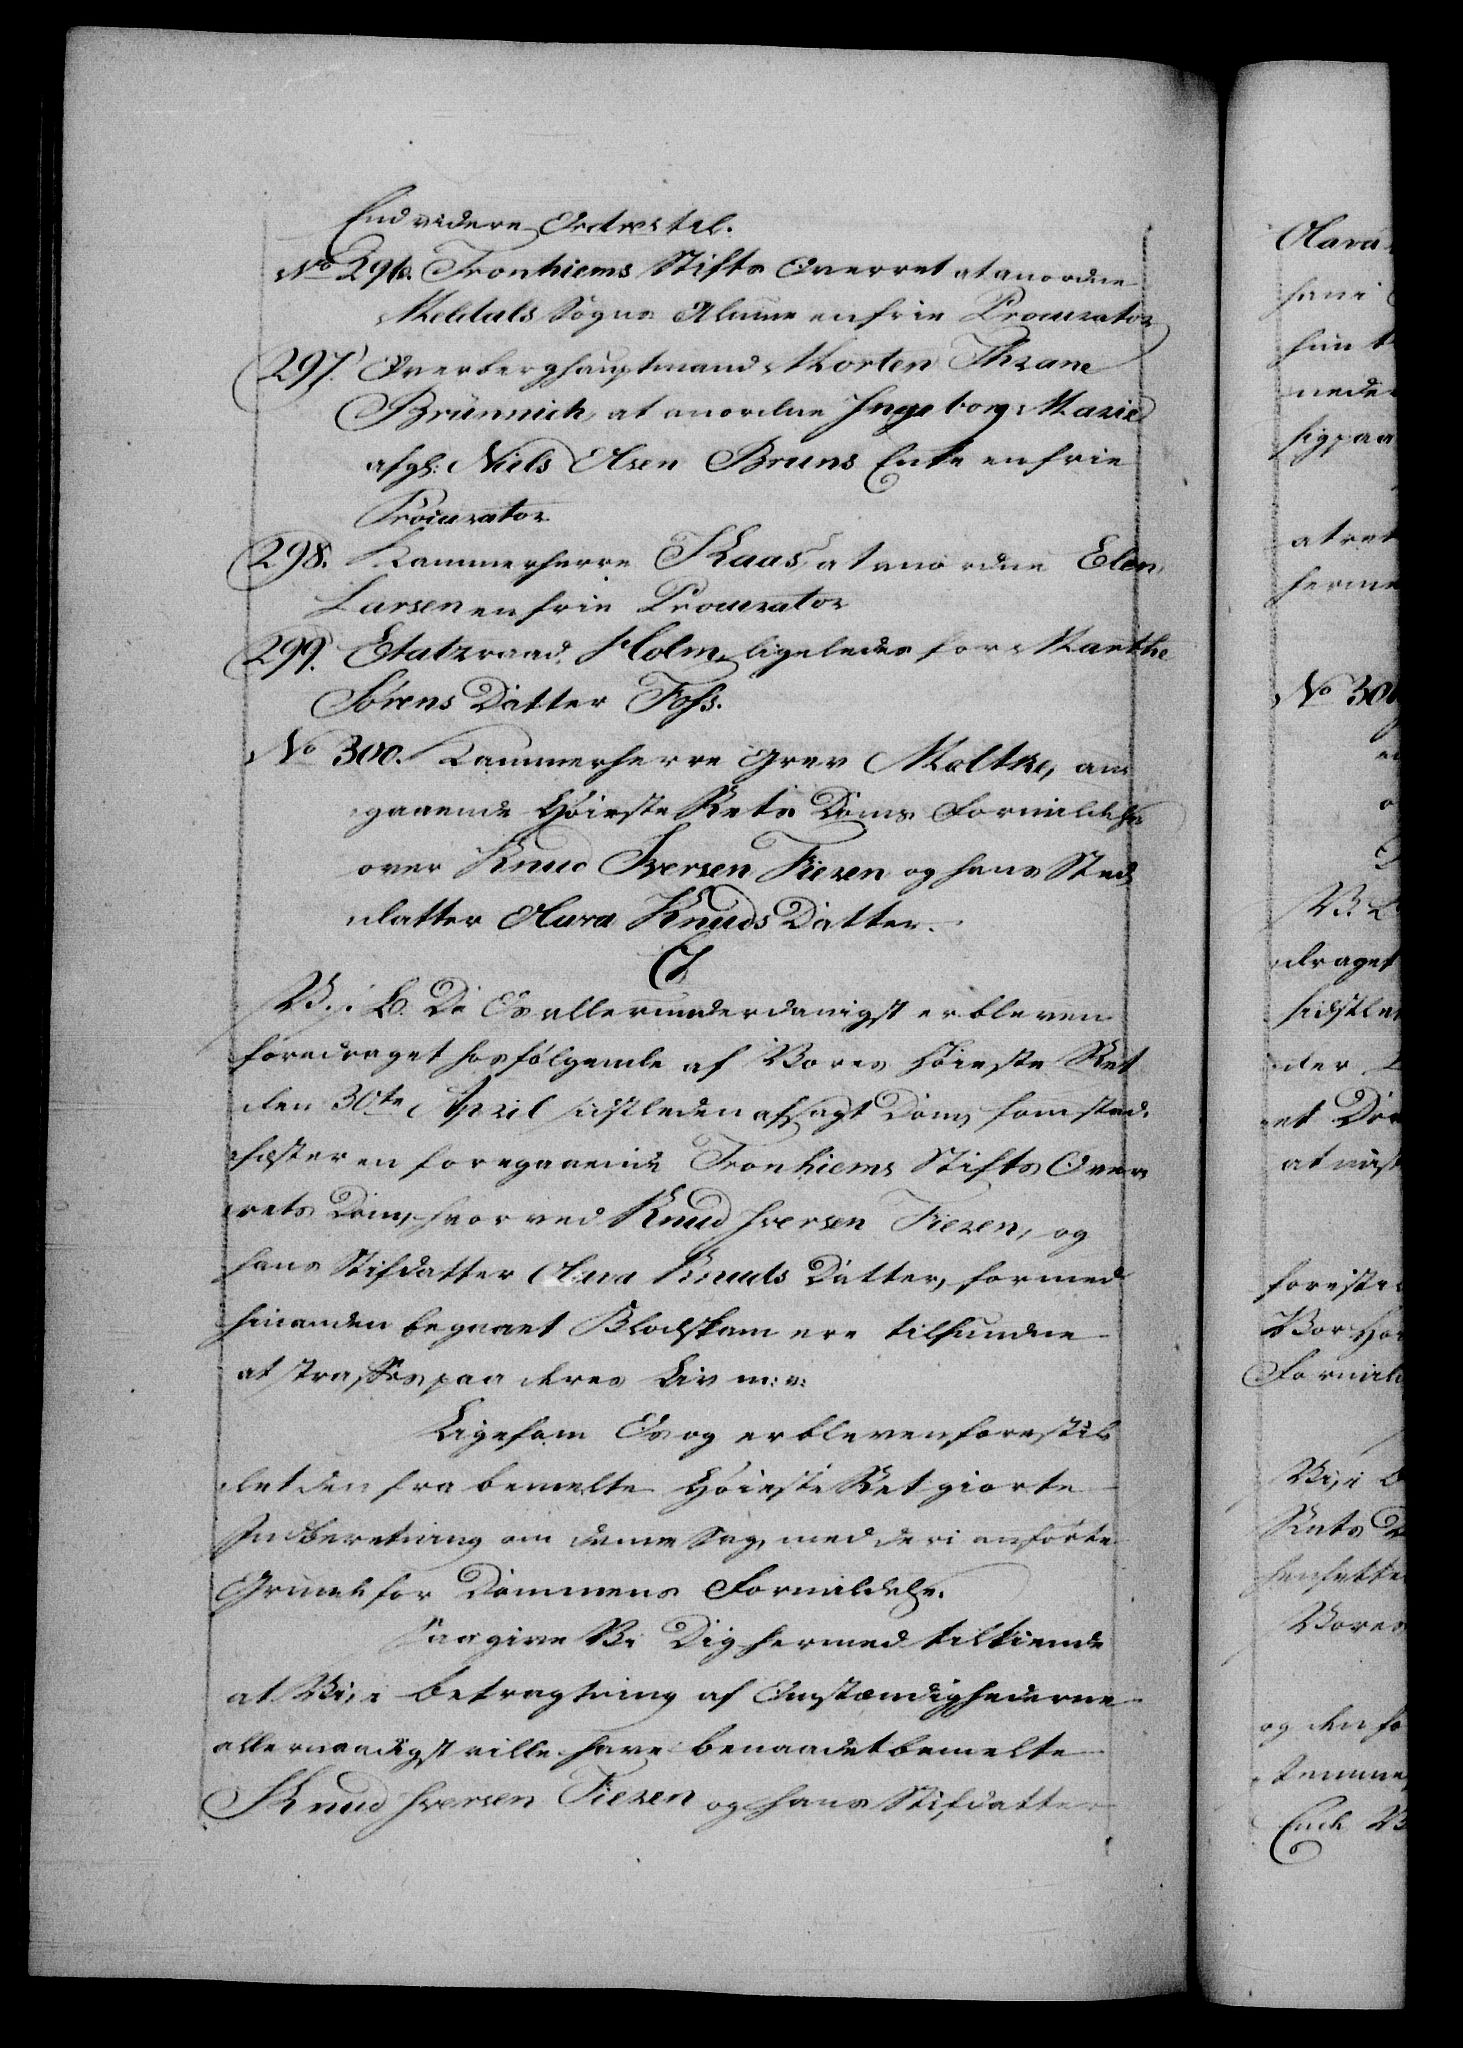 End videre Ordres til.
No 296. Tronhiems Stifts Overret at anordne
Meldals Sogns Almue en frie Procurator
297. Overberghauptmand Morten Thrane
Brünnich, at anordne Ingeborg Marie
afg: Niels Olsen Bruns Enke en frie
Procurator
298. Kammerherre Kaas, at anordne Elen
Larsen en frie Procurator
299. Etatzraad Holm, ligeledes for Marthe
Sørens Datter Foss.
No 300. Kammerherre Grev Moltke, an-
gaaende Høieste Rets Doms Formildelse
over Knud Iversen Tiezen og hans Sted
datter Olava Knuds Datter.
V. i L. Da Os allerunderdanigst er bleven
foredraget hosfølgende af Vores Høieste Ret
den 30te April sidstleden afsagt Dom, som stad-
fæster en foregaaende Tronhiems Stifts Over
rets Dom, hvorved Knud Iversen Tiezen, og
hans Stifdatter Olava Knuds Datter, for med
hinanden begaaet Blodskam ere tilfundne
at straffes paa deres Liv m: v:
Ligesom Os og er bleven forestil
let den fra bemelte Høieste Ret giorte
Indberetning om denne Sag, med deri anførte
Grunde for Dommens Formildelse.
Saa give Vi Dig hermed tilkiende
at Vi, i Betragtning af Omstændighederne
allernaadigst ville have benaadet bemelte
Knud Iversen Tiezen og hans Stifdatter
Olava
han i
hun
neder
sig paa
at ret
herme
No 300
V. L
draget
sidstle
der
et Do
at
forestil
Vor Hø
Formild
Vi, i
Rets
hensette
Vores
og den fo
temme
Ende V